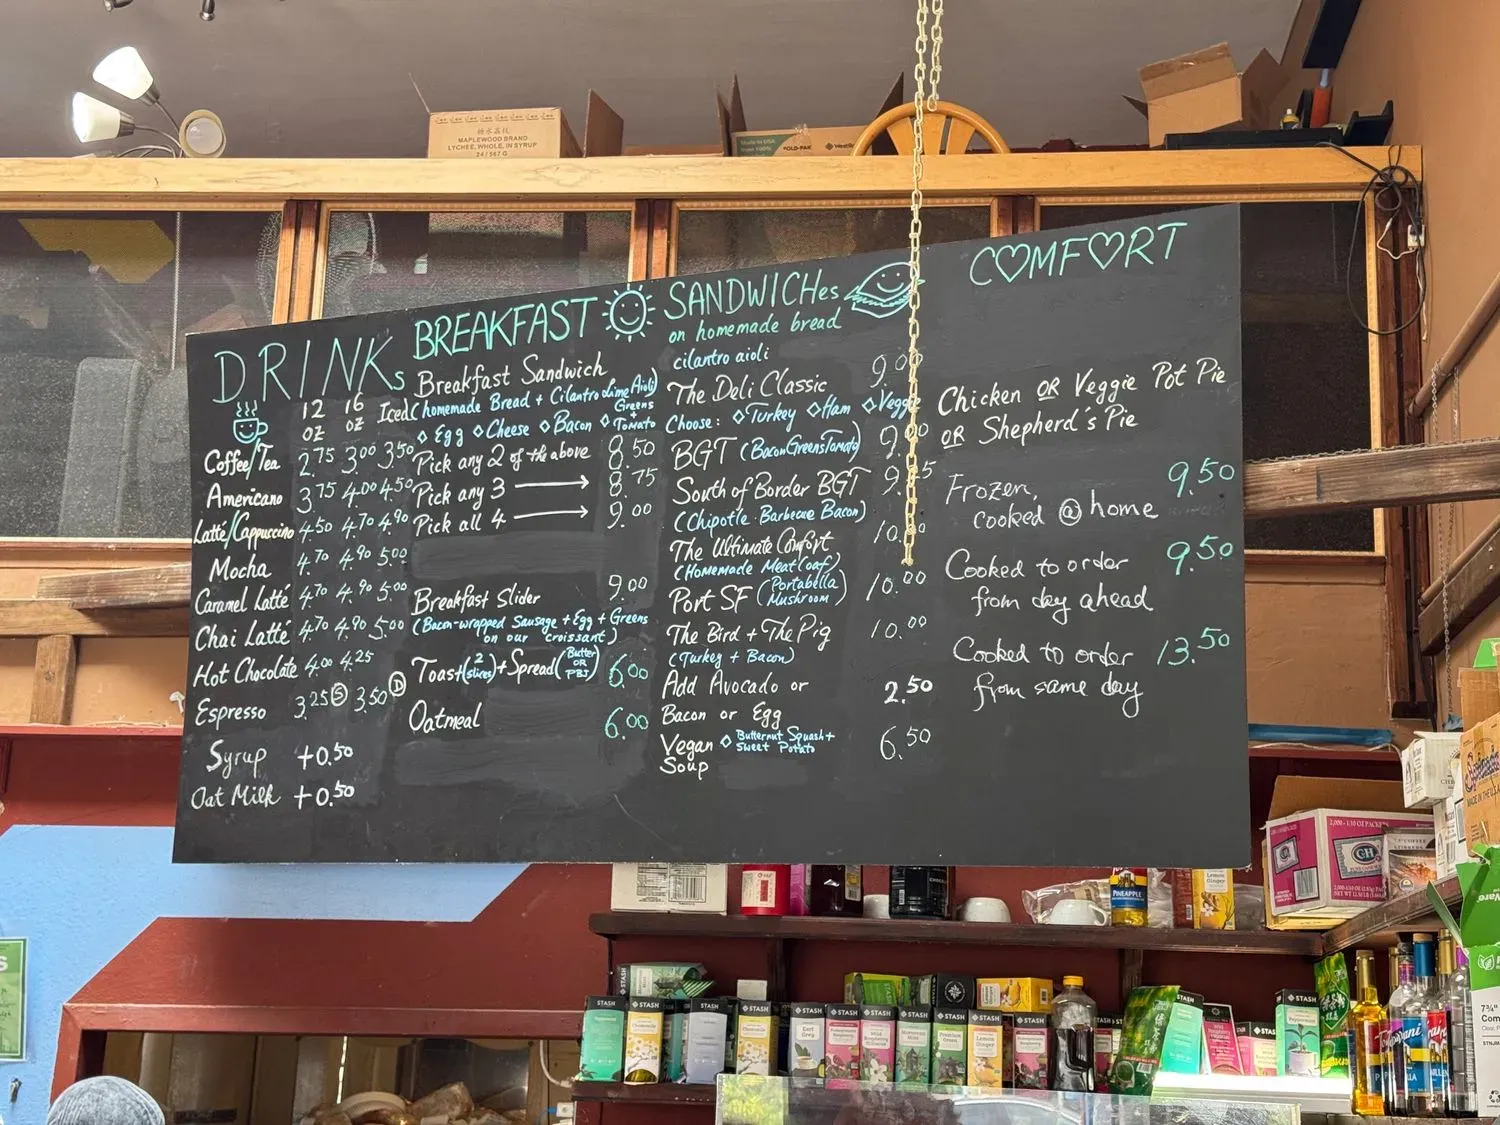 DRINKs
12 oz 16 oz Iced
Coffee/Tea 2.75 3.00 3.50
Americano 3.75 4.00 4.50
Latté/Cappuccino 4.50 4.70 4.90
Mocha 4.70 4.90 5.00
Caramel Latté 4.70 4.90 5.00
Chai Latté 4.70 4.90 5.00
Hot Chocolate 4.00 4.25
Espresso 3.25 S 3.50 D
Syrup +0.50
Oat Milk +0.50
BREAKFAST
Breakfast Sandwich
(homemade Bread + Cilantro Lime Aioli)
◇ Egg ◇ Cheese ◇ Bacon ◇ Greens + Tomato
Pick any 2 of the above 8.50
Pick any 3 → 8.75
Pick all 4 → 9.00
Breakfast Slider 9.00
(Bacon-wrapped Sausage + Egg + Greens
on our croissant)
Toast (2 slices) + Spread (Butter OR PBJ) 6.00
Oatmeal 6.00
SANDWICHes
on homemade bread
cilantro aioli
The Deli Classic 9.00
Choose: ◇Turkey ◇Ham ◇Veggie
BGT (Bacon Greens Tomato) 9.00
South of Border BGT
(Chipotle Barbecue Bacon)
The Ultimate Comfort
(Homemade Meatloaf)
Port SF (Portabella Mushroom) 10.00
The Bird + The Pig 10.00
(Turkey + Bacon)
Add Avocado or 2.50
Bacon or Egg
Vegan ◇ Butternut Squash + Sweet Potato 6.50
Soup
C♡MF♡RT
Chicken OR Veggie Pot Pie
OR Shepherd's Pie
Frozen, 9.50
cooked @ home
Cooked to order 9.50
from day ahead
Cooked to order 13.50
from same day
MAPLEWOOD BRAND
LYCHEE, WHOLE, IN SYRUP
24 / 567 G
PINEAPPLE
Lemon Ginger
STASH
STASH
STASH
STASH
STASH
STASH
STASH
STASH
STASH
STASH
STASH
Chamomile
Earl Grey
Lemon Ginger